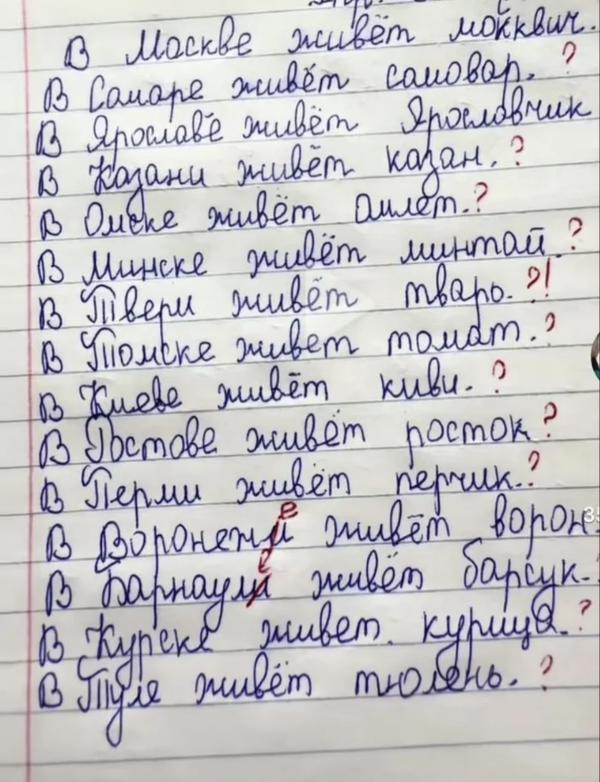 В Москве живёт москвич.
В Самаре живёт самовар. ?
В Ярославе живёт Ярославчик
В Казани живёт казан. ?
В Омске живёт омлет. ?
В Минске живёт минтай ?
В Твери живёт тварь. ?!
В Томске живет томат. ?
В Киеве живёт киви. ?
В Ростове живёт росток ?
В Перми живёт перчик. ?
В Воронежи е живёт ворон
В Барнаули е живёт барсук.
В Курске живет. курица. ?
В Туле живёт тюлень. ?